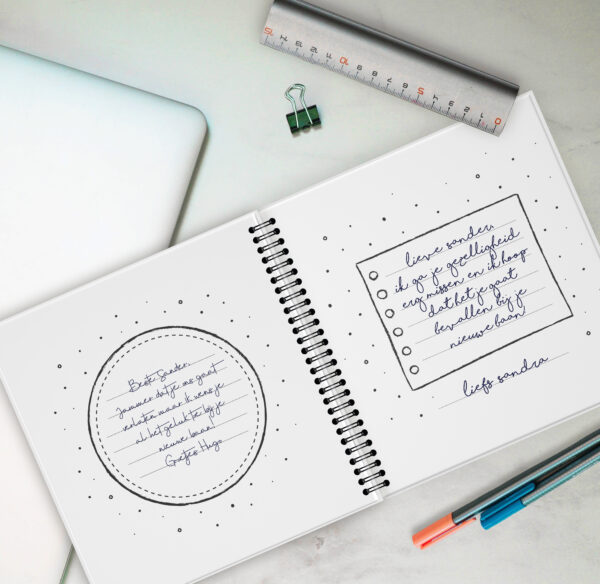 Beste Sander,
Jammer dat je ons gaat
verlaten maar ik wens je
al het geluk toe bij je
nieuwe baan!
Groetjes Hugo
lieve sander,
ik ga je gezelligheid
erg missen en ik hoop
dat het je gaat
bevallen bij je
nieuwe baan!
liefs sandra
0 1 2 3 4 5 6 7 8 9 10 11 12 13 14 15